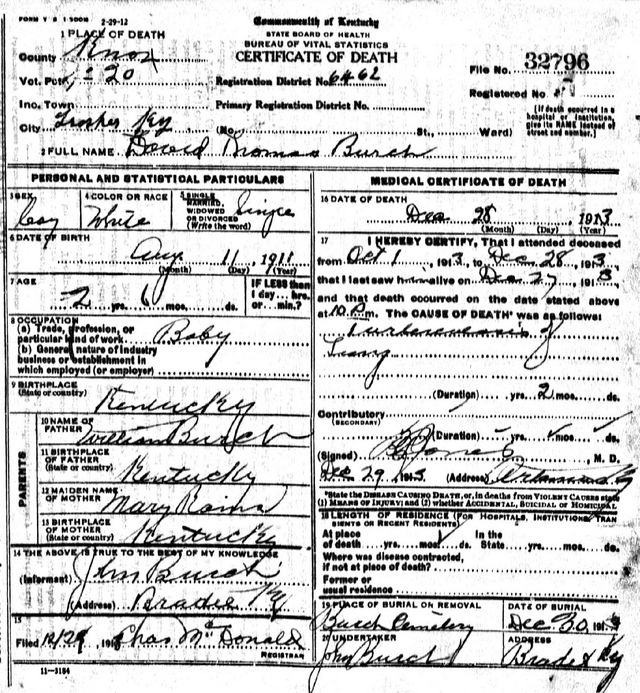 FORM V S 1 500M 2-29-12
Commonwealth of Kentucky
STATE BOARD OF HEALTH
BUREAU OF VITAL STATISTICS
CERTIFICATE OF DEATH
1 PLACE OF DEATH
County Knox
Vot. Pct. 20
Inc. Town
City Ky
Registration District No. 6462
Primary Registration District No.
(No. St., Ward)
File No. 32796
Registered No.
(If death occurred in a hospital or institution, give its NAME instead of street and number.)
2 FULL NAME David Thomas Burch
PERSONAL AND STATISTICAL PARTICULARS
3 SEX Boy
4 COLOR OR RACE White
5 SINGLE MARRIED, WIDOWED OR DIVORCED (Write the word) Single
6 DATE OF BIRTH Aug 11, 1911
(Month) (Day) (Year)
7 AGE 2 yrs. 6 mos. ds.
IF LESS than 1 day... hrs. or... min.?
8 OCCUPATION
(a) Trade, profession, or particular kind of work Baby
(b) General nature of industry business or establishment in which employed (or employer)
9 BIRTHPLACE (State or country) Kentucky
PARENTS
10 NAME OF FATHER William Burch
11 BIRTHPLACE OF FATHER (State or country) Kentucky
12 MAIDEN NAME OF MOTHER Mary Rains
13 BIRTHPLACE OF MOTHER (State or country) Kentucky
14 THE ABOVE IS TRUE TO THE BEST OF MY KNOWLEDGE
(Informant) John Burch
(Address) Ky
15
Filed 12/29 191 Chas McDonald
REGISTRAR
11-3184
MEDICAL CERTIFICATE OF DEATH
16 DATE OF DEATH Dec 28, 1913
(Month) (Day) (Year)
17 I HEREBY CERTIFY, That I attended deceased
from Oct 1, 1913, to Dec 28, 1913
that I last saw him alive on Dec 27, 1913
and that death occurred on the date stated above
at 10 m. The CAUSE OF DEATH* was as follows:
of
Lung
(Duration) yrs. 2 mos. ds.
Contributory (SECONDARY)
(Duration) yrs. mos. ds.
(Signed) Jones, M. D.
Dec 29, 1913 (Address)
*State the DISEASE CAUSING DEATH, or, in deaths from VIOLENT CAUSES state
(1) MEANS OF INJURY; and (2) whether ACCIDENTAL, SUICIDAL or HOMICIDAL
18 LENGTH OF RESIDENCE (FOR HOSPITALS, INSTITUTIONS, TRANSIENTS OR RECENT RESIDENTS)
At place of death yrs. mos. ds. In the State yrs. mos. ds.
Where was disease contracted, if not at place of death?
Former or usual residence
19 PLACE OF BURIAL OR REMOVAL Burch Cemetery
DATE OF BURIAL Dec 30, 191
20 UNDERTAKER John Burch
ADDRESS Ky